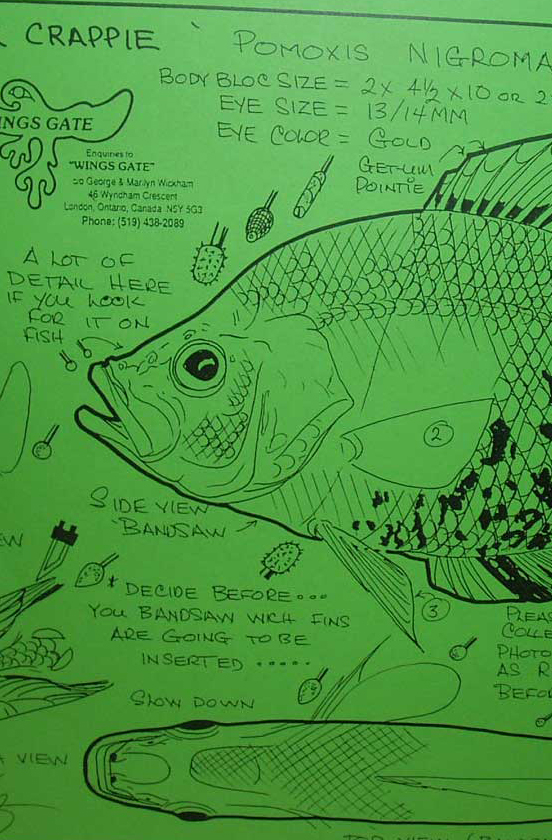 CRAPPIE ` POMOXIS NIGROMA
BODY BLOC SIZE = 2 X 4½ X 10 OR 2
EYE SIZE = 13/14 MM
EYE COLOR = GOLD
GET-UM
POINTIE
INGS GATE
Enquiries to
"WINGS GATE"
c/o George & Marilyn Wickham
46 Wyndham Crescent
London, Ontario, Canada N5Y 5G3
Phone: (519) 438-2089
A LOT OF
DETAIL HERE
IF YOU LOOK
FOR IT ON
FISH
2
SIDE VIEW
"BANDSAW
EW
* DECIDE BEFORE...
YOU BANDSAW WICH FINS
ARE GOING TO BE
INSERTED .....
3
PLEAS
COLLE
PHOTO
AS R
BEFOR
SLOW DOWN
VIEW